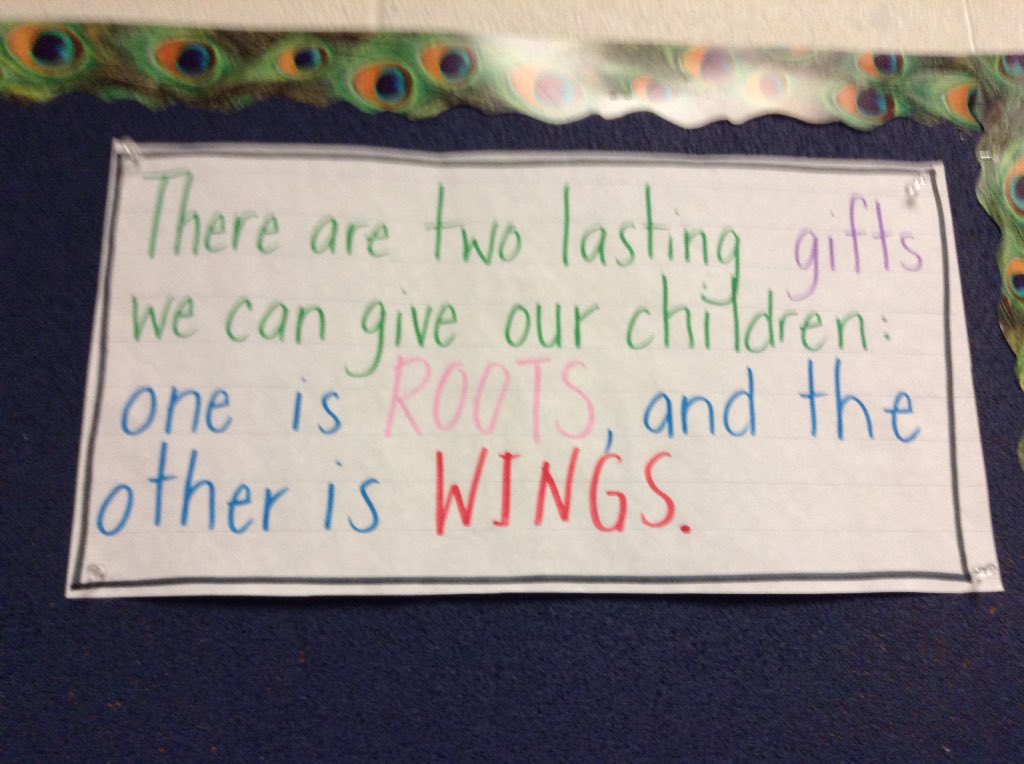 There are two lasting gifts
we can give our children:
one is ROOTS, and the
other is WINGS.